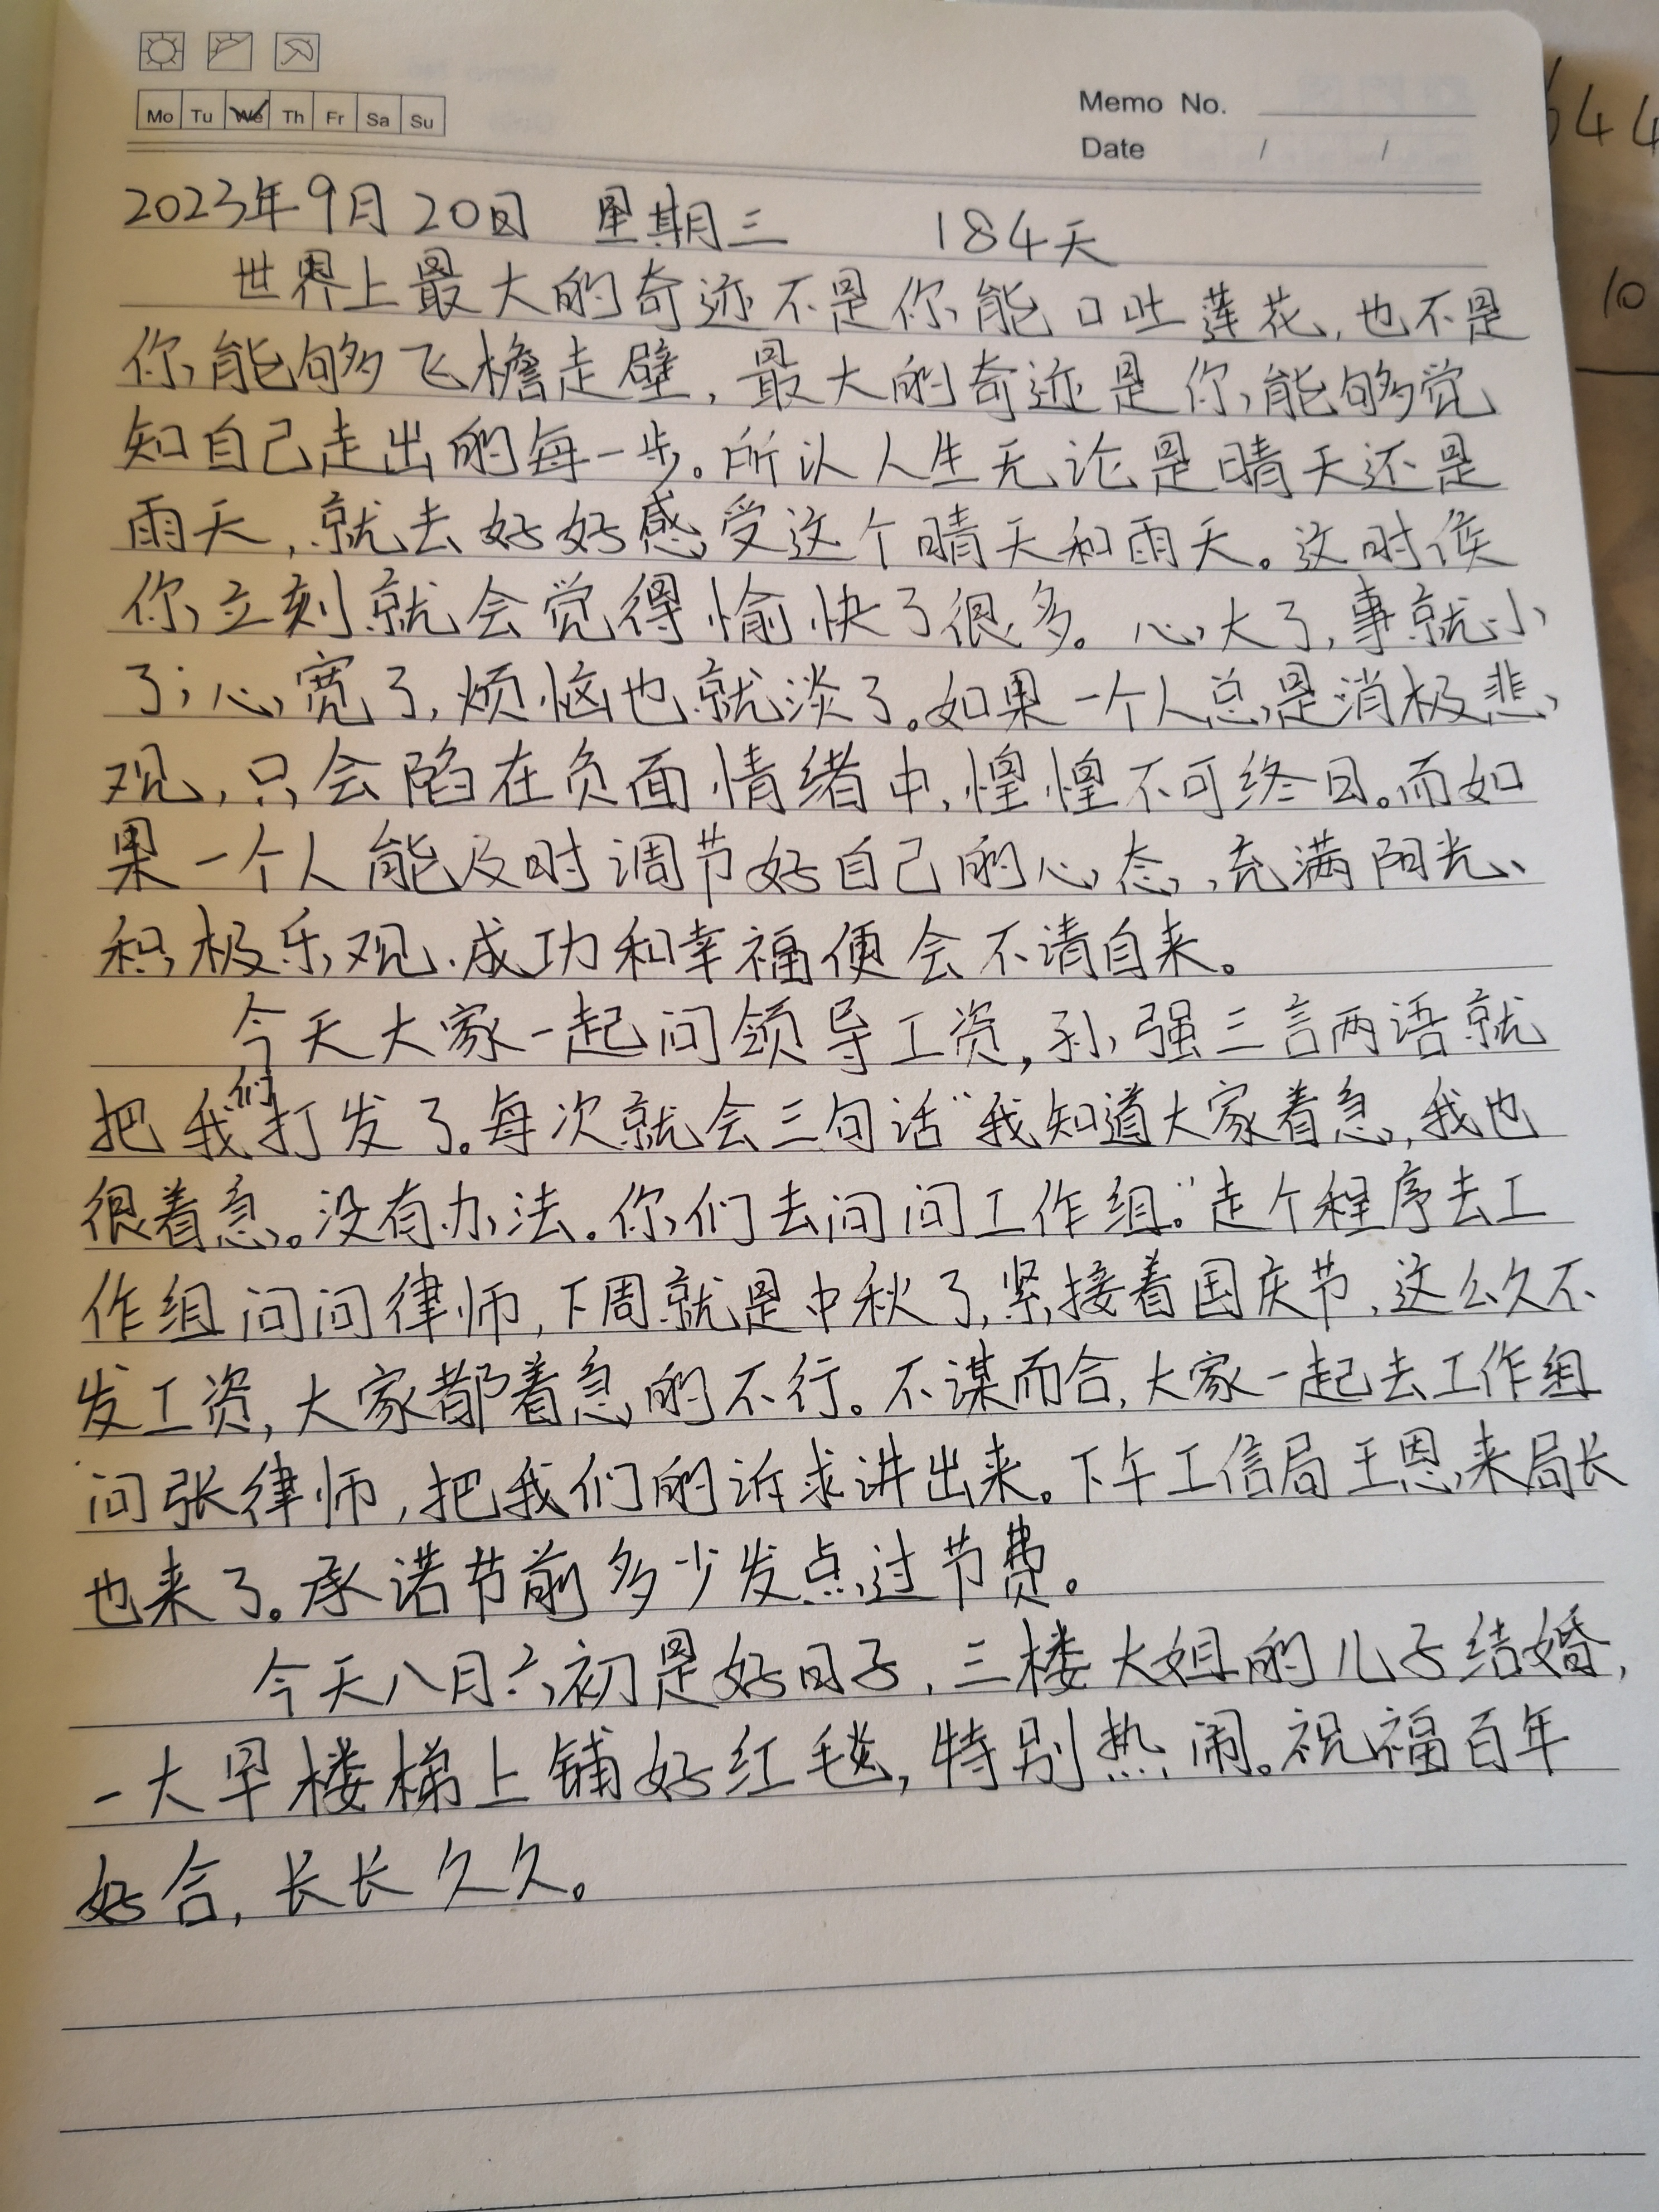 Mo Tu We Th Fr Sa Su
Memo No.
Date / /
2023年9月20日 星期三 184天
世界上最大的奇迹不是你能口吐莲花,也不是
你能够飞檐走壁,最大的奇迹是你能够觉
知自己走出的每一步。所以人生无论是晴天还是
雨天,就去好好感受这个晴天和雨天。这时候
你立刻就会觉得愉快了很多。心大了,事就小
了;心宽了,烦恼也就淡了。如果一个人总是消极悲
观,只会陷在负面情绪中,惶惶不可终日。而如
果一个人能及时调节好自己的心态,充满阳光、
积极乐观,成功和幸福便会不请自来。
今天大家一起问领导工资,孙强三言两语就
把我们打发了。每次就会三句话“我知道大家着急,我也
很着急。没有办法。你们去问问工作组。”走个程序去工
作组问问律师,下周就是中秋了,紧接着国庆节,这么久不
发工资,大家都着急的不行。不谋而合,大家一起去工作组
问张律师,把我们的诉求讲出来。下午工信局王恩来局长
也来了。承诺节前多少发点过节费。
今天八月六初是好日子,三楼大姐的儿子结婚,
一大早楼梯上铺好红毯,特别热闹。祝福百年
好合,长长久久。
44
10